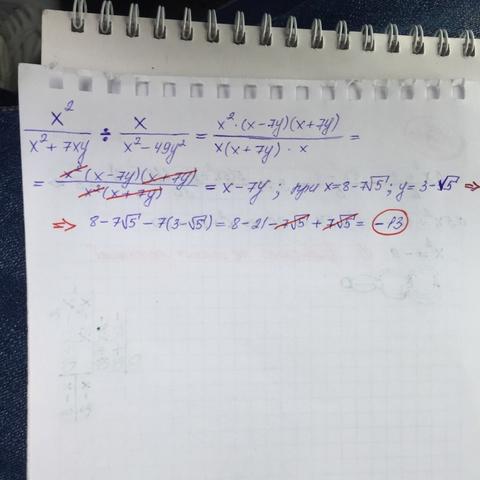 x²/(x² + 7xy) ÷ x/(x² - 49y²) = x²·(x-7y)(x+7y)/(x(x+7y)·x) =
= x²(x-7y)(x+7y)/(x²(x+7y)) = x-7y; при x=8-7√5; y=3-√5 ⇒
⇒ 8-7√5-7(3-√5)=8-21-7√5+7√5= -13